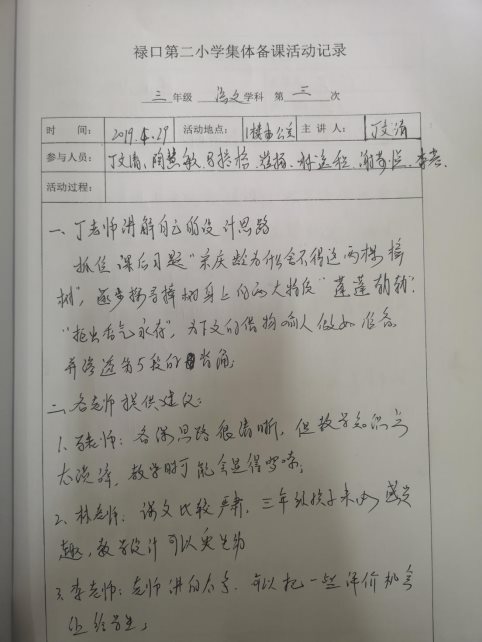 禄口第二小学集体备课活动记录
三 年级 语文 学科 第 三 次
时 间： 2019.4.29 活动地点： 1楼办公室 主 讲 人： 丁文清
参与人员： 丁文清、陶慧敏、
活动过程：
一、丁老师讲解自己的设计思路
抓住课后习题“宋庆龄为什么舍不得这两棵樟
树”，逐步指导樟树身上的两大特点“蓬蓬勃勃”
“拒虫香气永存”，为下文的借物喻人做好准备
并渗透第5段的背诵。
二、各老师提供建议：
1. 老师：备课思路很清晰，但教学知识点
太琐碎，教学时可能会显得啰嗦；
2、林老师：课文比较严肃，三年级孩子未必感兴
趣，教学设计可以更生动
3、李老师：老师讲的太多，可以把一些评价机会
让给学生；